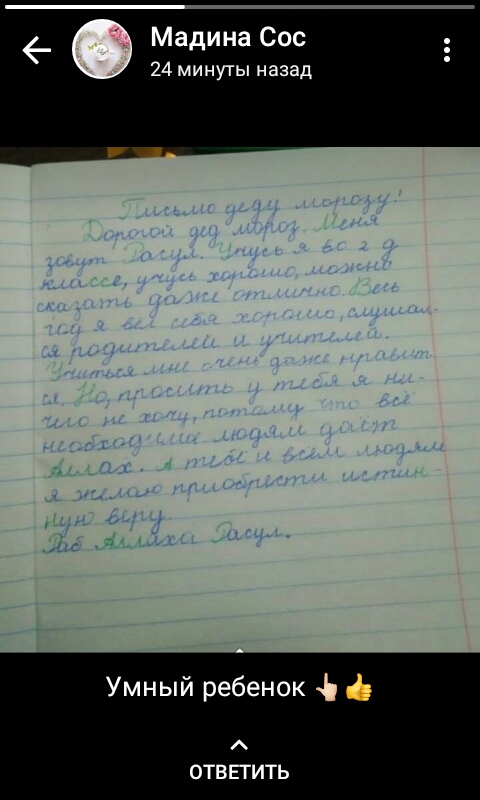 Мадина Сос
24 минуты назад
Письмо деду морозу!
Дорогой дед мороз. Меня
зовут Расул. Учусь я во 2 д
классе, учусь хорошо, можно
сказать даже отлично. Весь
год я вел себя хорошо, слушал-
ся родителей и учителей.
Учиться мне очень даже нравит
ся. Но, просить у тебя я ни-
чего не хочу, потому что всё
необходимое людям даёт
Аллах. А тебе и всем людям
я желаю приобрести истин-
ную веру.
Раб Аллаха Расул.
Умный ребенок 👆🏻👍
ОТВЕТИТЬ